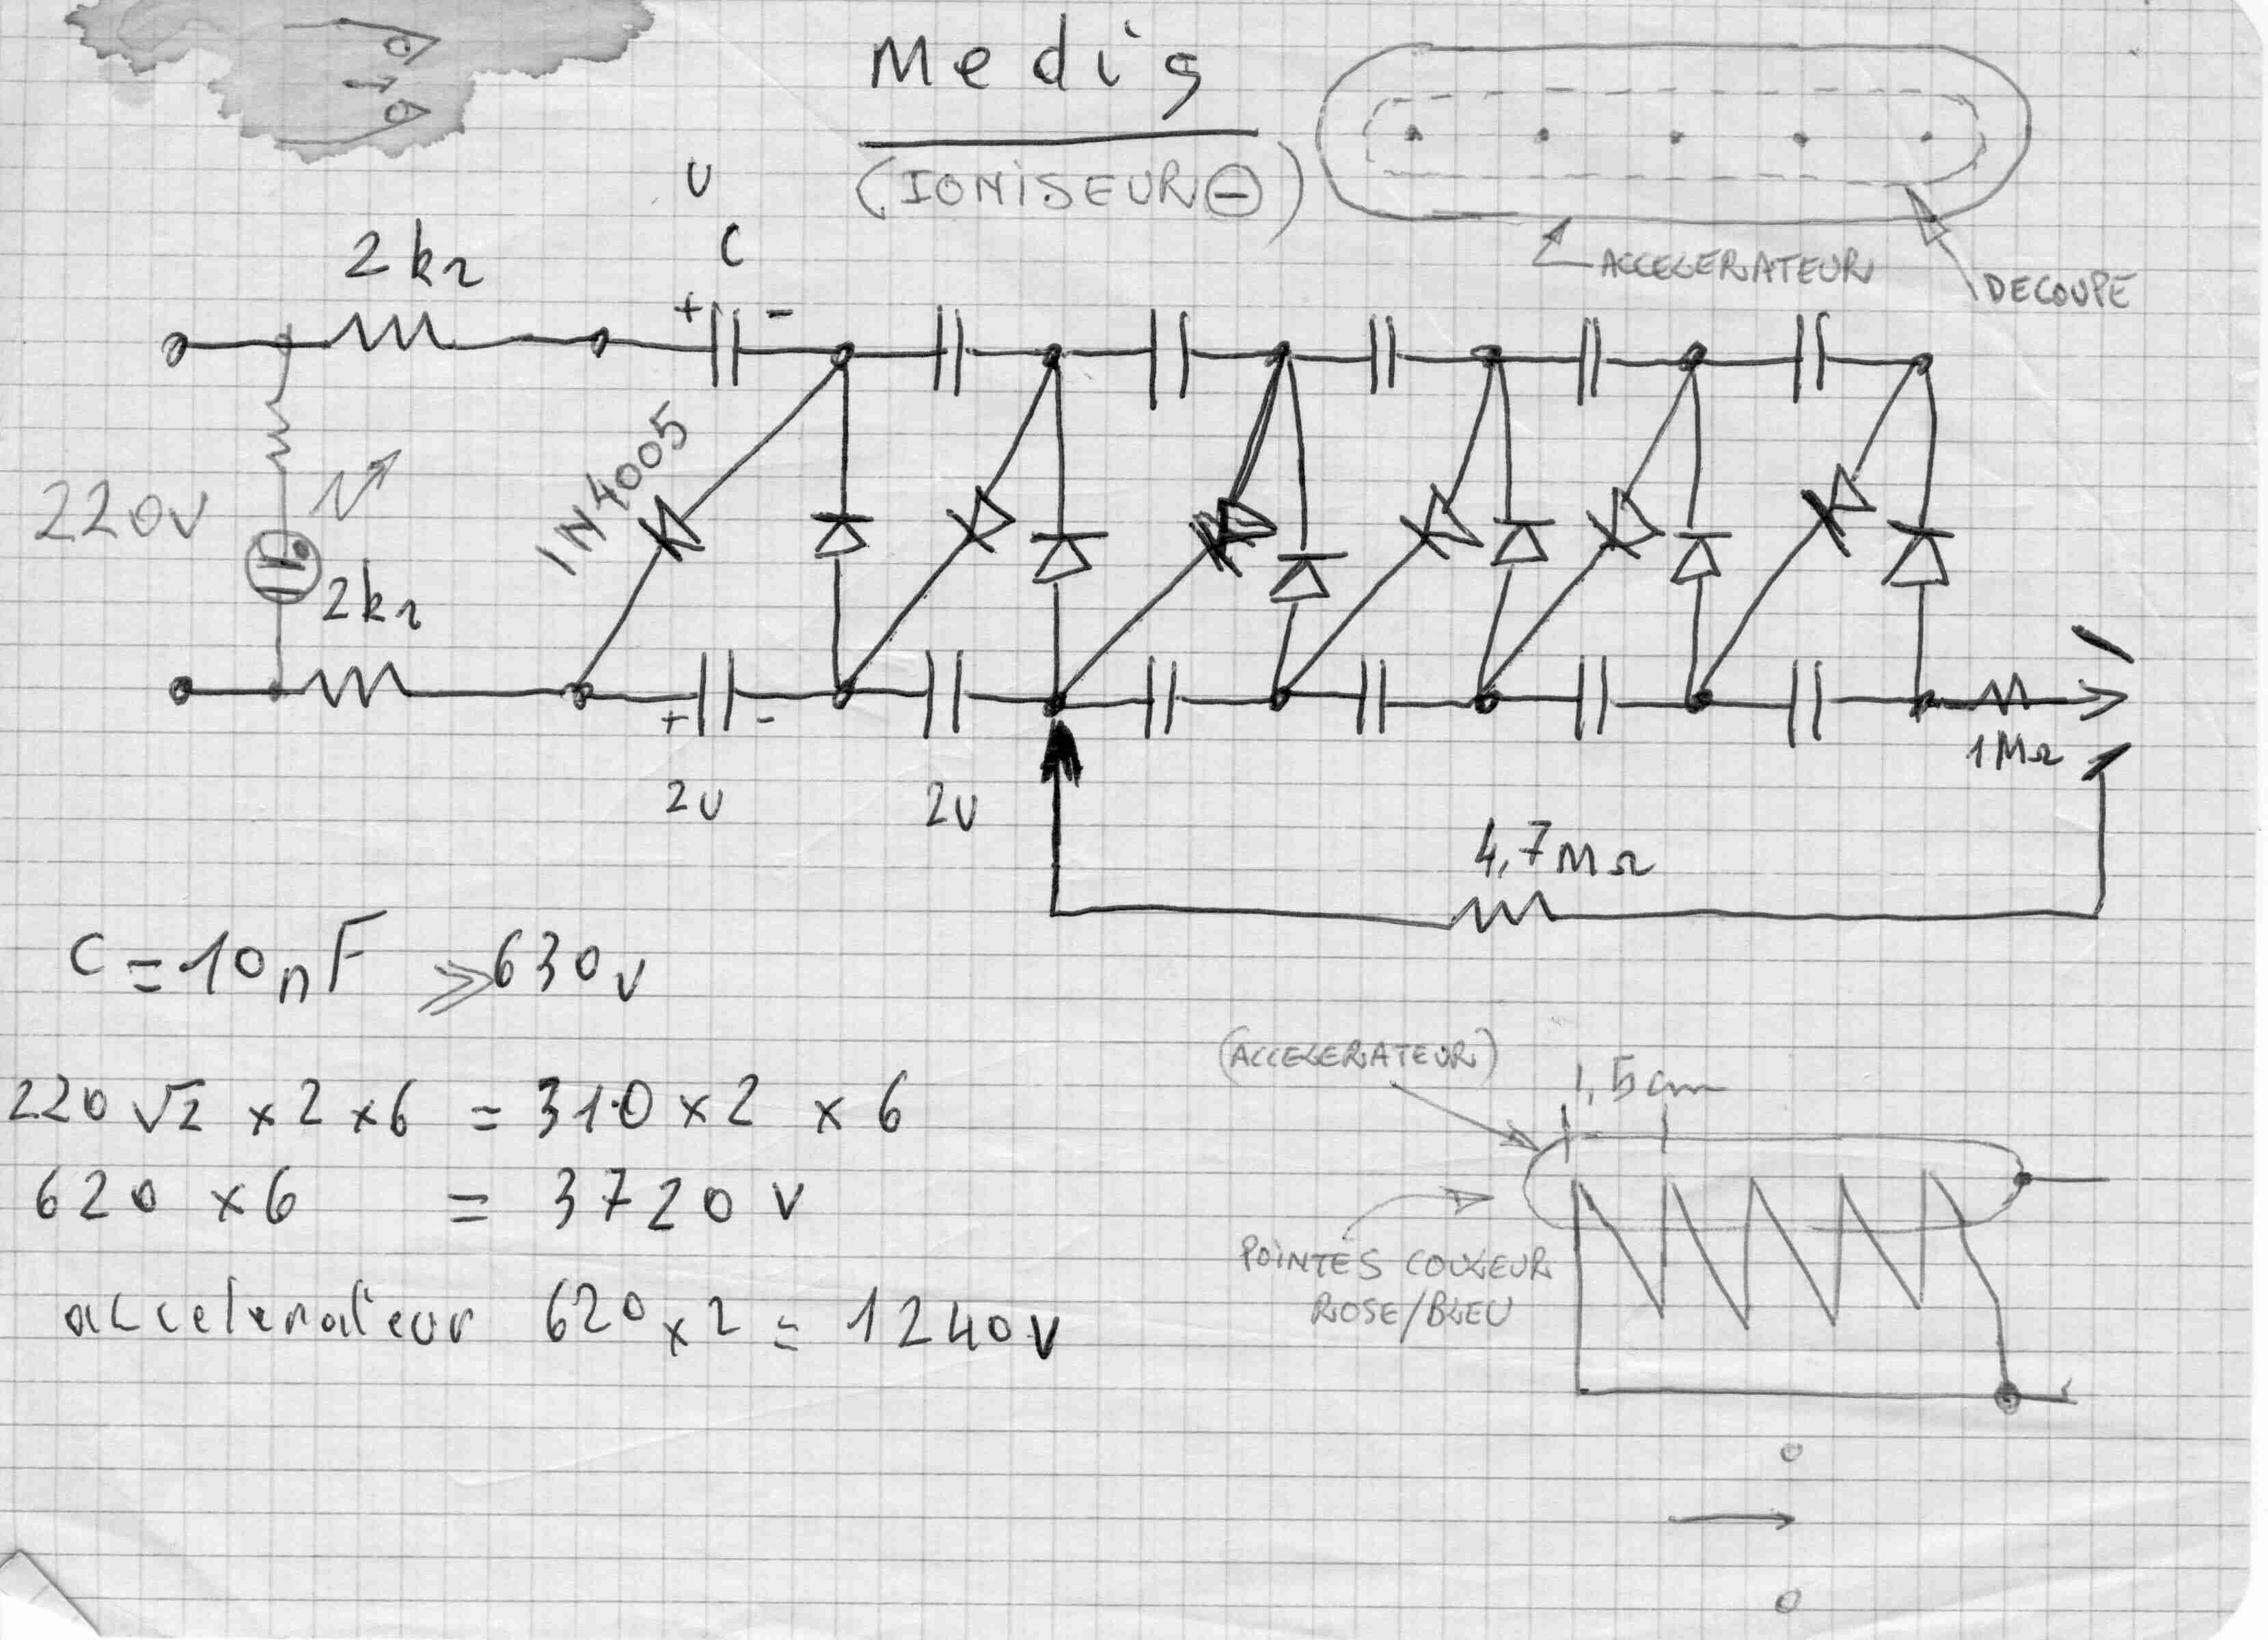 Medis
(IONISEUR⊖)
ACCELERATEUR
DECOUPE
U
C
2kΩ
+ -
1N4005
220V
2kΩ
+ -
2U
2U
1MΩ
4,7MΩ
C = 10nF ≫ 630V
220√2 x 2 x 6 = 310 x 2 x 6
620 x 6 = 3720V
accelerateur 620 x 2 = 1240V
(ACCELERATEUR)
1,5cm
POINTES COULEUR
ROSE/BLEU